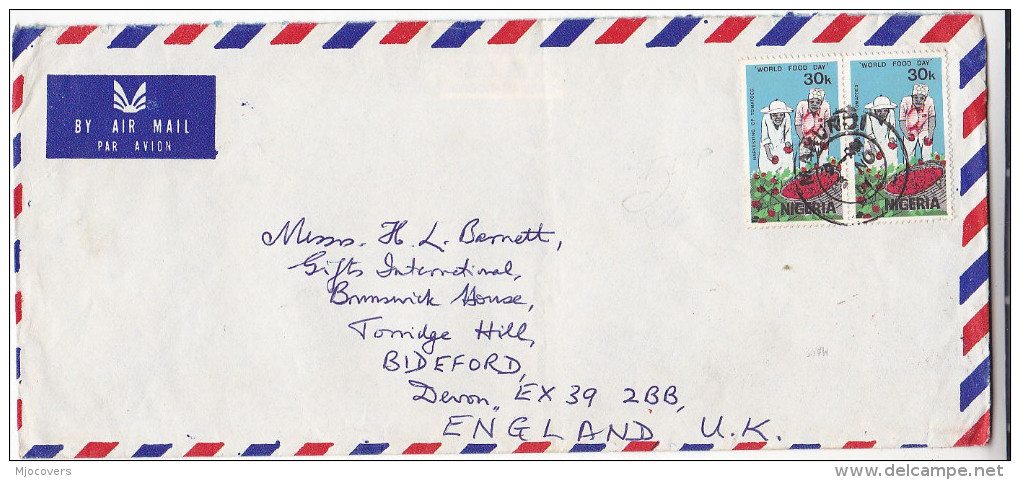 BY AIR MAIL
PAR AVION
'WORLD FOOD DAY'
30k
HARVESTING OF TOMATOES
NIGERIA
'WORLD FOOD DAY'
30k
TOMATOES
NIGERIA
NO
Messrs. H. L. Barnett,
Gifts International,
Brunswick House,
Torridge Hill,
BIDEFORD,
Devon, EX 39 2BB,
ENGLAND U.K.
Mjocovers
www.delcampe.net